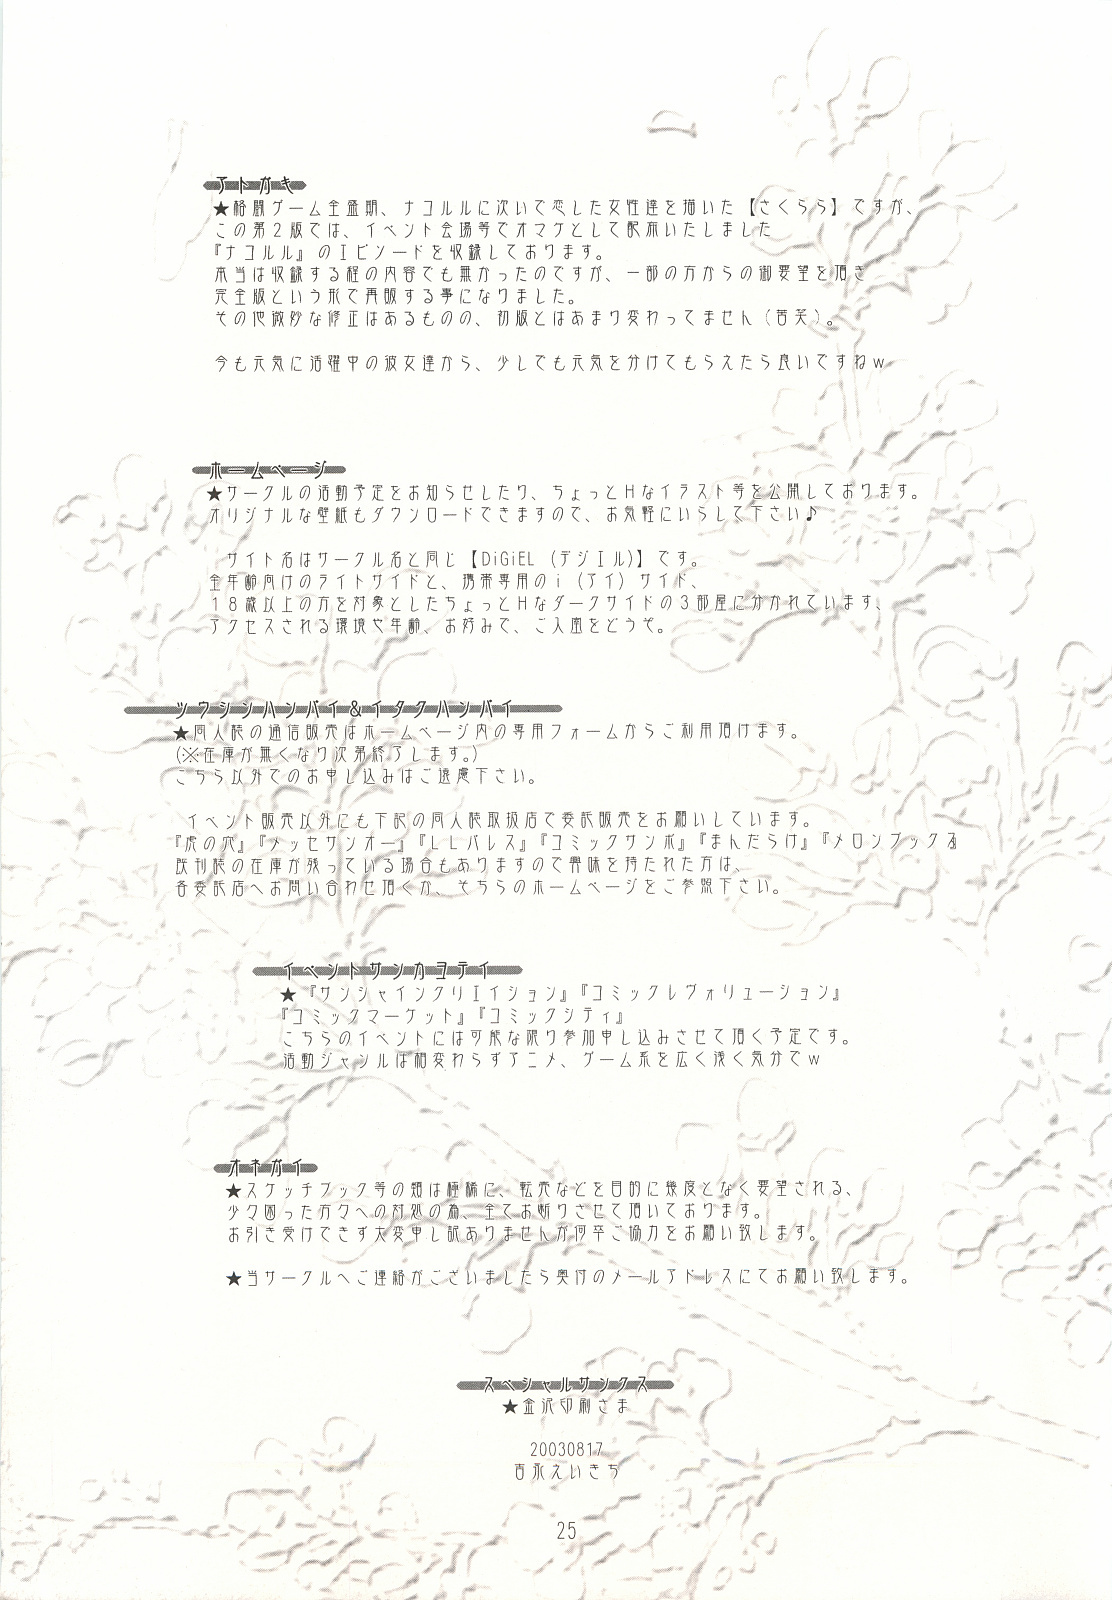 アトガキ
★格闘ゲーム全盛期、ナコルルに次いで恋した女性達を描いた【さくらら】ですが、
この第2版では、イベント会場等でオマケとして配布いたしました
『ナコルル』のエピソードを収録しております。
本当は収録する程の内容でも無かったのですが、一部の方からの御要望を頂き
完全版という形で再販する事になりました。
その他微妙な修正はあるものの、初版とはあまり変わってません（苦笑）。
今も元気に活躍中の彼女達から、少しでも元気を分けてもらえたら良いですねw
ホームページ
★サークルの活動予定をお知らせしたり、ちょっとHなイラスト等を公開しております。
オリジナルな壁紙もダウンロードできますので、お気軽にいらして下さい♪
サイト名はサークル名と同じ【DiGiEL（デジエル)】です。
全年齢向けのライトサイドと、携帯専用のi（アイ）サイド、
18歳以上の方を対象としたちょっとHなダークサイドの3部屋に分かれています、
アクセスされる環境や年齢、お好みで、ご入室をどうぞ。
ツウシンハンバイ&イタクハンバイ
★同人誌の通信販売はホームページ内の専用フォームからご利用頂けます。
(※在庫が無くなり次第終了します。)
こちら以外でのお申し込みはご遠慮下さい。
イベント販売以外にも下記の同人誌取扱店で委託販売をお願いしています。
『虎の穴』『メッセサンオー』『LLパレス』『コミックサンボ』『まんだらけ』『メロンブックス』
既刊誌の在庫が残っている場合もありますので興味を持たれた方は、
各委託店へお問い合わせ頂くか、そちらのホームページをご参照下さい。
イベントサンカヨテイ
★『サンシャインクリエイション』『コミックレヴォリューション』
『コミックマーケット』『コミックシティ』
こちらのイベントには可能な限り参加申し込みさせて頂く予定です。
活動ジャンルは相変わらずアニメ、ゲーム系を広く浅く気分でw
オネガイ
★スケッチブック等の類は極稀に、転売などを目的に幾度となく要望される、
少々困った方々への対処の為、全てお断りさせて頂いております。
お引き受けできず大変申し訳ありませんが何卒ご協力をお願い致します。
★当サークルへご連絡がございましたら奥付のメールアドレスにてお願い致します。
スペシャルサンクス
★金沢印刷さま
20030817
吉永えいきち
25